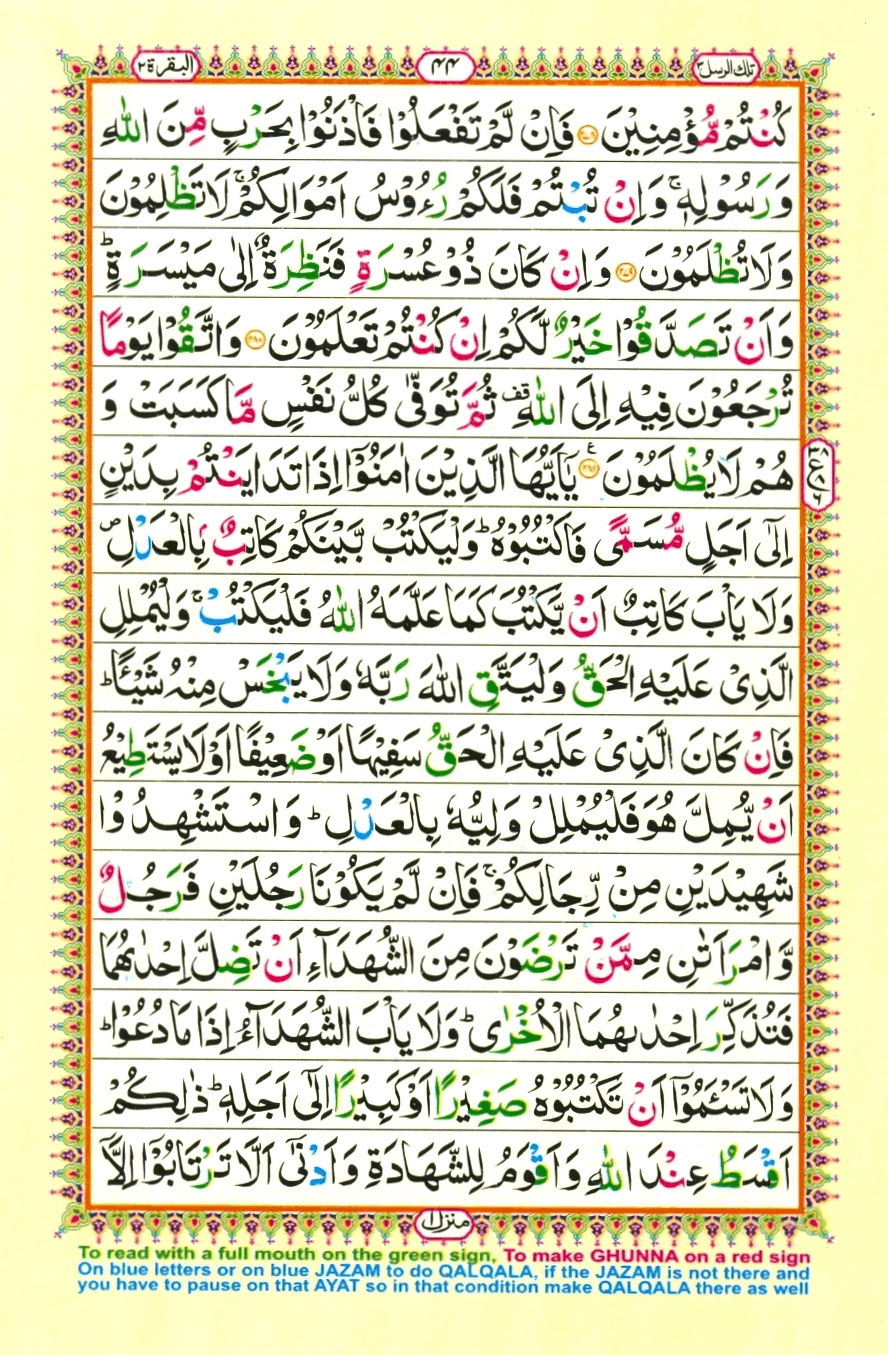 تلك الرسل ٣ ٤٤ البقرة ٢
كُنْتُمْ مُّؤْمِنِيْنَ ۝٢٧٨ فَاِنْ لَّمْ تَفْعَلُوْا فَاْذَنُوْا بِحَرْبٍ مِّنَ اللّٰهِ
وَ رَسُوْلِهٖ ۚ وَ اِنْ تُبْتُمْ فَلَكُمْ رُءُوْسُ اَمْوَالِكُمْ ۚ لَا تَظْلِمُوْنَ
وَلَا تُظْلَمُوْنَ ۝٢٧٩ وَ اِنْ كَانَ ذُوْ عُسْرَةٍ فَنَظِرَةٌ اِلٰى مَيْسَرَةٍ ؕ
وَ اَنْ تَصَدَّقُوْا خَيْرٌ لَّكُمْ اِنْ كُنْتُمْ تَعْلَمُوْنَ ۝٢٨٠ وَ اتَّقُوْا يَوْمًا
تُرْجَعُوْنَ فِيْهِ اِلَى اللّٰهِ ࣞقف ثُمَّ تُوَفّٰى كُلُّ نَفْسٍ مَّا كَسَبَتْ وَ
هُمْ لَا يُظْلَمُوْنَ ۝٢٨١ ع يٰۤاَيُّهَا الَّذِيْنَ اٰمَنُوْۤا اِذَا تَدَايَنْتُمْ بِدَيْنٍ
اِلٰۤى اَجَلٍ مُّسَمًّى فَاكْتُبُوْهُ ؕ وَلْيَكْتُبْ بَّيْنَكُمْ كَاتِبٌۢ بِالْعَدْلِ ۪
وَلَا يَاْبَ كَاتِبٌ اَنْ يَّكْتُبَ كَمَا عَلَّمَهُ اللّٰهُ فَلْيَكْتُبْ ۚ وَلْيُمْلِلِ
الَّذِىْ عَلَيْهِ الْحَقُّ وَلْيَتَّقِ اللّٰهَ رَبَّهٗ وَلَا يَبْخَسْ مِنْهُ شَيْـًٔا ؕ
فَاِنْ كَانَ الَّذِىْ عَلَيْهِ الْحَقُّ سَفِيْهًا اَوْ ضَعِيْفًا اَوْ لَا يَسْتَطِيْعُ
اَنْ يُّمِلَّ هُوَ فَلْيُمْلِلْ وَلِيُّهٗ بِالْعَدْلِ ؕ وَ اسْتَشْهِدُوْا
شَهِيْدَيْنِ مِنْ رِّجَالِكُمْ ۚ فَاِنْ لَّمْ يَكُوْنَا رَجُلَيْنِ فَرَجُلٌ
وَّ امْرَاَتٰنِ مِمَّنْ تَرْضَوْنَ مِنَ الشُّهَدَآءِ اَنْ تَضِلَّ اِحْدٰىهُمَا
فَتُذَكِّرَ اِحْدٰىهُمَا الْاُخْرٰى ؕ وَلَا يَاْبَ الشُّهَدَآءُ اِذَا مَا دُعُوْا ؕ
وَلَا تَسْـَٔمُوْۤا اَنْ تَكْتُبُوْهُ صَغِيْرًا اَوْ كَبِيْرًا اِلٰۤى اَجَلِهٖ ؕ ذٰلِكُمْ
اَقْسَطُ عِنْدَ اللّٰهِ وَ اَقْوَمُ لِلشَّهَادَةِ وَ اَدْنٰۤى اَلَّا تَرْتَابُوْۤا اِلَّاۤ
منزل ١
To read with a full mouth on the green sign, To make GHUNNA on a red sign
On blue letters or on blue JAZAM to do QALQALA, if the JAZAM is not there and
you have to pause on that AYAT so in that condition make QALQALA there as well